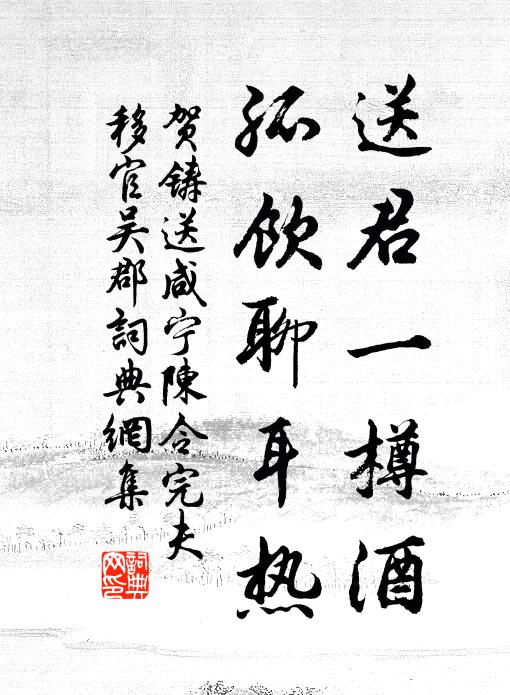 送君一樽酒
孤饮聊耳热
贺铸送咸宁陳令完夫
移官吴郡詞典網集
詞典
网印